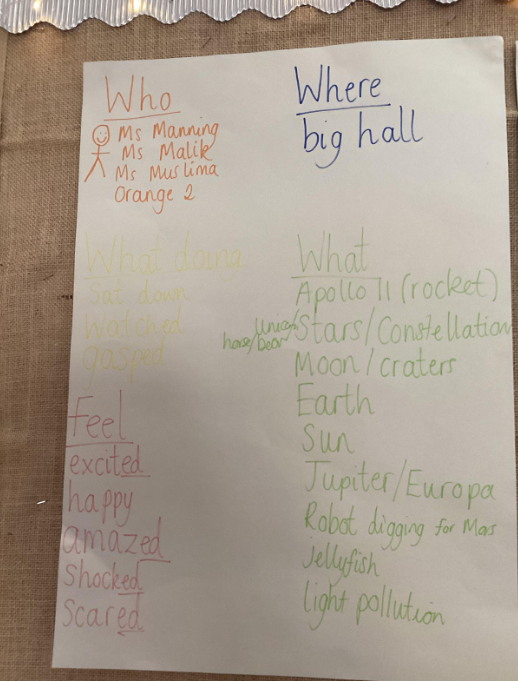 Who
Ms Manning
Ms Malik
Ms Muslima
Orange 2
Where
big hall
What doing
Sat down
Watched
gasped
What
Apollo 11 (rocket)
Stars/Constellation
horse/bear
Moon/craters
Earth
Sun
Jupiter/Europa
Robot digging for Mars
jellyfish
light pollution
Feel
excited
happy
amazed
shocked
scared